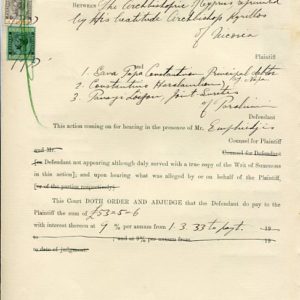 BETWEEN The Archbishopric of Cyprus represented
by His Beatitude Archbishop Kyrillos
of Nicosia
Plaintiff
1. Sava Papa Constantinou Principal debtor
2. Constantinos Haralambou
3. Panayi Loizou Joint Sureties
of Paralimni
Defendant
This action coming on for hearing in the presence of Mr.
Counsel for Plaintiff
and Mr. Counsel for Defendant
[no Defendant not appearing although duly served with a true copy of the Writ of Summons
in this action]; and upon hearing what was alleged by or on behalf of the Plaintiff,
[or of the parties respectively].
This Court DOTH ORDER AND ADJUDGE that the Defendant do pay to
the Plaintiff the sum of £53-5-6
with interest thereon at 9 % per annum from 1.3.33 to payt. 19
; and at 9% per annum from 19
to date of judgment.